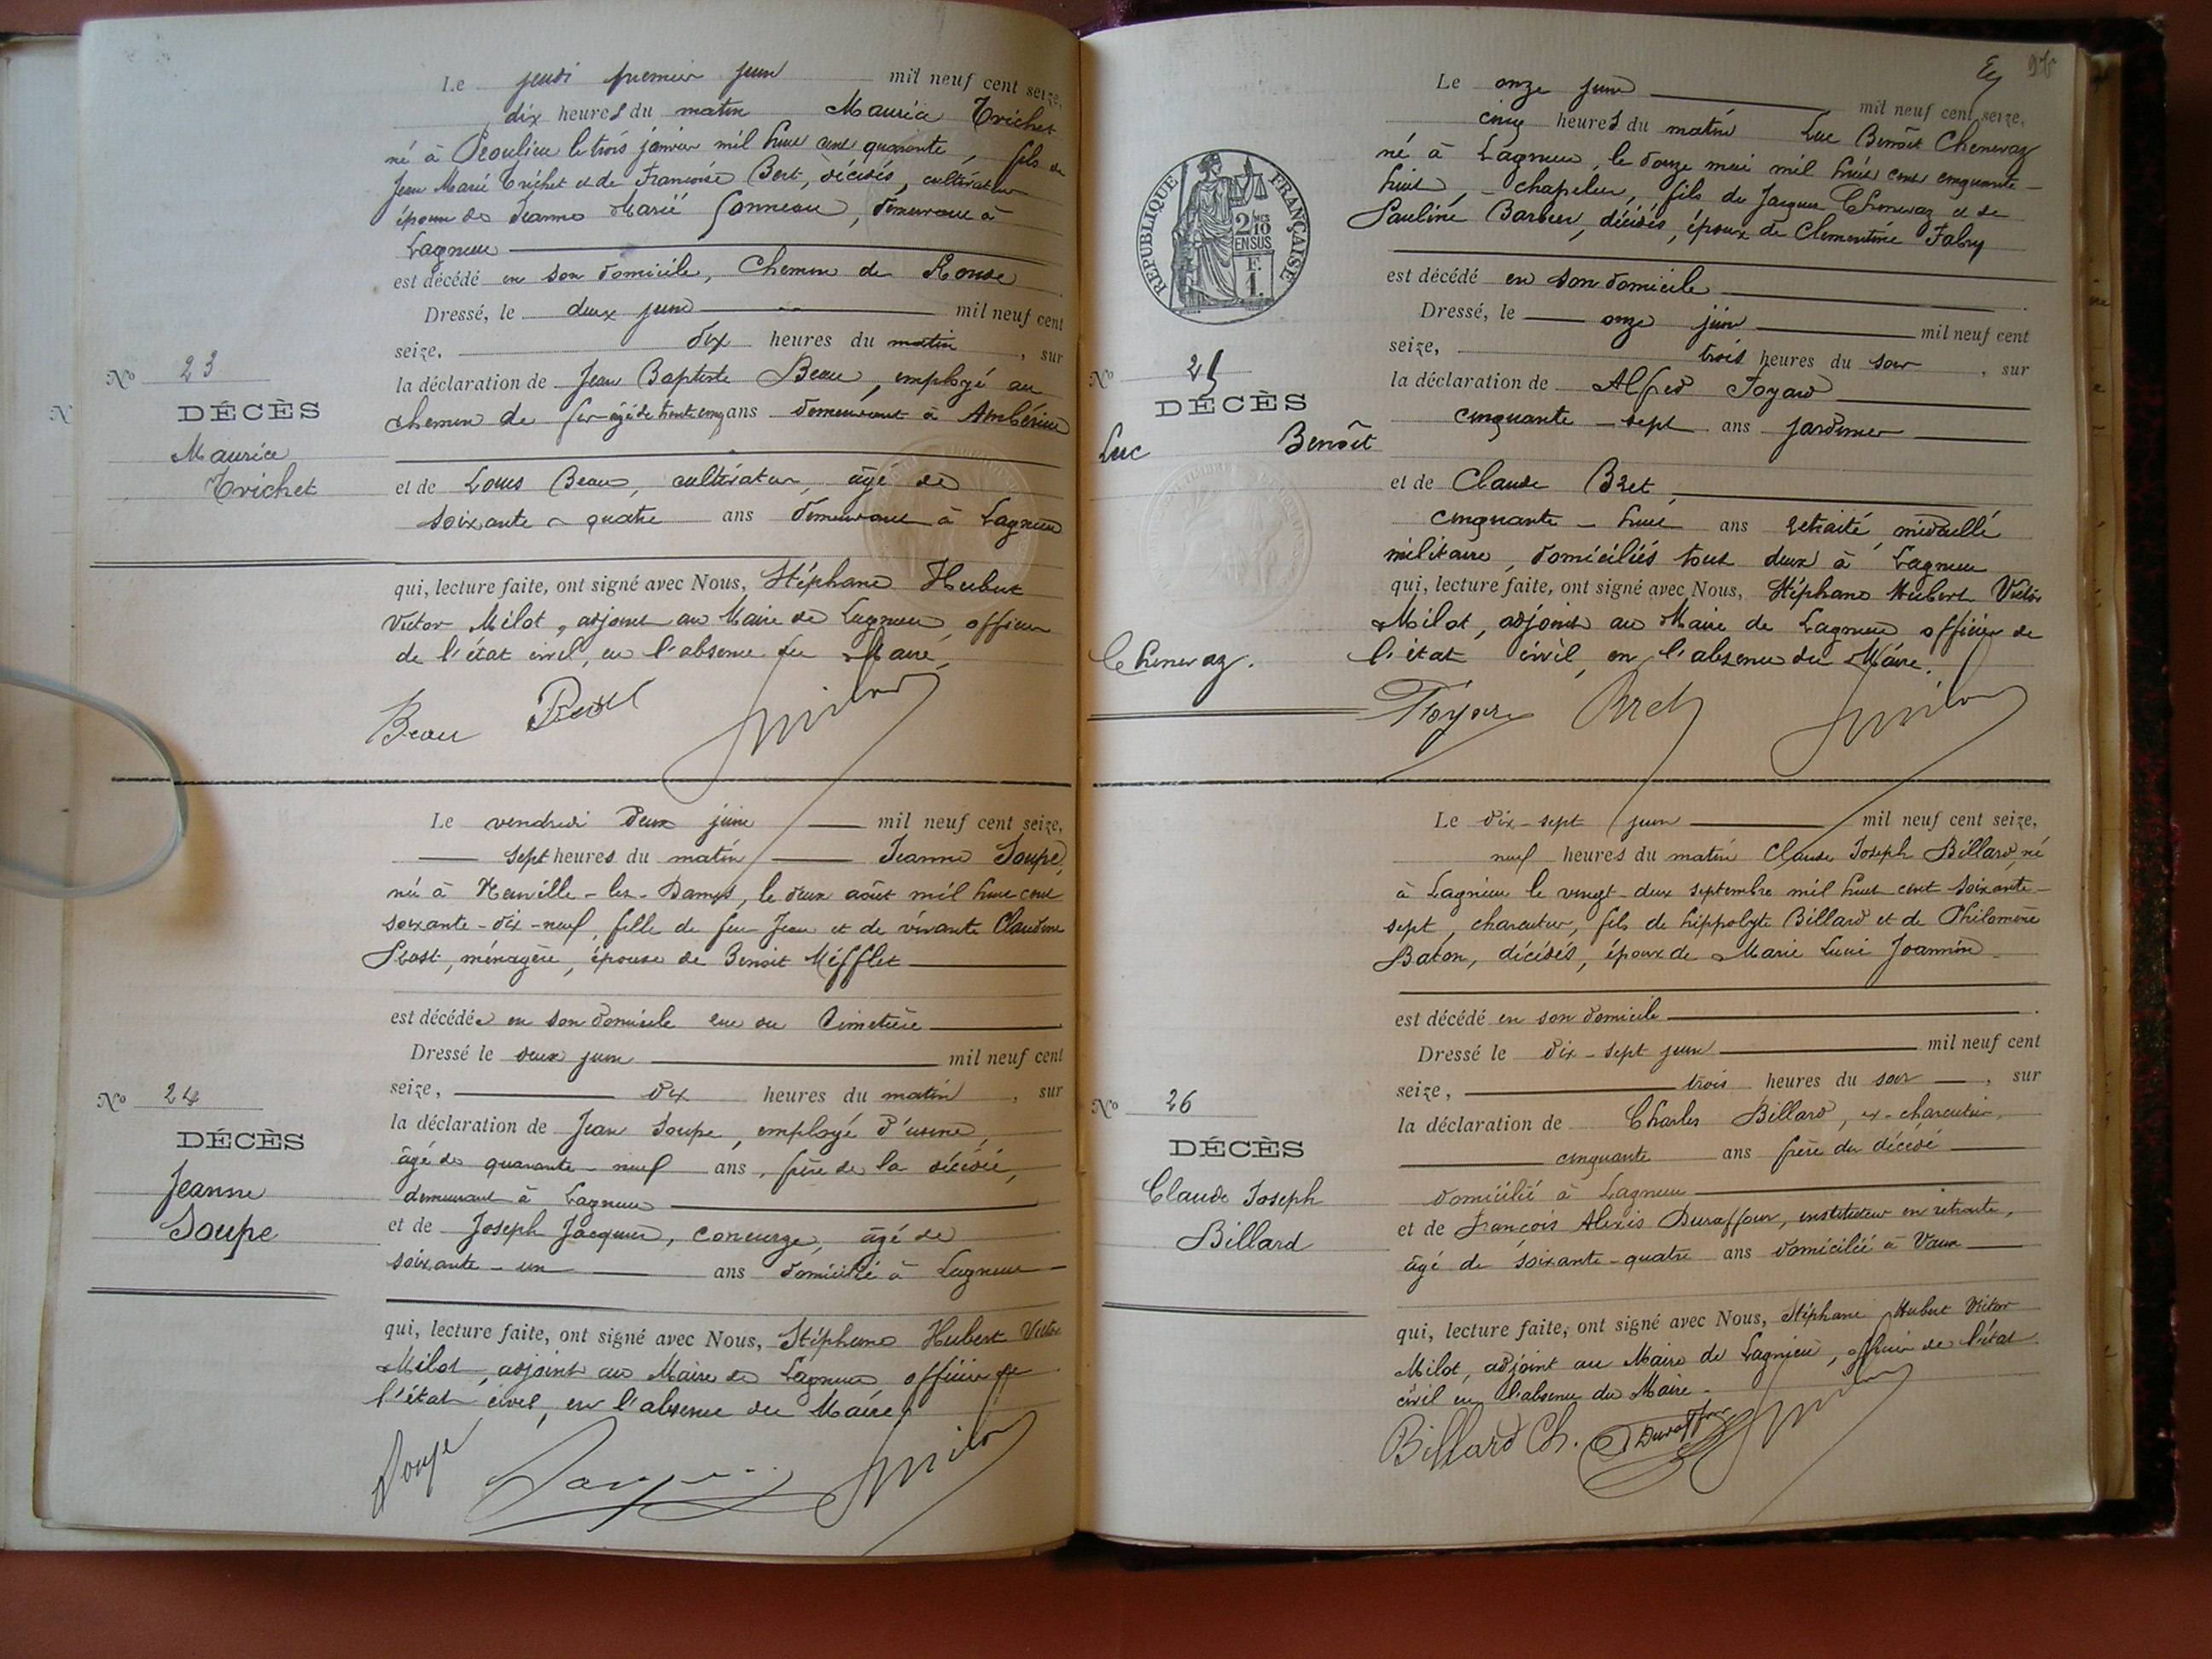 Le jeudi premier juin mil neuf cent seize,
dix heures du matin Maurice Trichet
né à Proulieu le trois janvier mil huit cent quarante, fils de
Jean Marie Trichet et de Françoise Bert, décédés, cultivateur
époux de Jeanne Marie Sonneau, demeurant à
Lagnieu
est décédé en son domicile, Chemin de Ronde
Dressé, le deux juin mil neuf cent
seize, dix heures du matin, sur
la déclaration de Jean Baptiste Beau, employé au
chemin de fer âgé de trente cinq ans demeurant à Ambérieu
et de Louis Beau, cultivateur, âgé de
soixante-quatre ans demeurant à Lagnieu
qui, lecture faite, ont signé avec Nous, Stéphane Hubert
Victor Milot, adjoint au Maire de Lagnieu, officier
de l'état civil, en l'absence du Maire,
Beau Milot
No 23
DÉCÈS
Maurice
Trichet
Le vendredi deux juin mil neuf cent seize,
sept heures du matin Jeanne Soupe,
née à Neuville-les-Dames, le deux août mil huit cent
soixante-dix-neuf, fille de feu Jean et de vivante Claudine
Prost, ménagère, épouse de Benoit Mifflet
est décédée en son domicile rue du Cimetière
Dressé le deux juin mil neuf cent
seize, dix heures du matin, sur
la déclaration de Jean Soupe, employé d'usine,
âgé de quarante-neuf ans, frère de la décédée,
demeurant à Lagnieu
et de Joseph Jacquin, concierge, âgé de
soixante-un ans domicilié à Lagnieu
qui, lecture faite, ont signé avec Nous, Stéphane Hubert Victor
Milot, adjoint au Maire de Lagnieu officier de
l'état civil, en l'absence du Maire,
Soupe Jacquin Milot
No 24
DÉCÈS
Jeanne
Soupe
96
Le onze juin mil neuf cent seize,
cinq heures du matin Luc Benoît Chenevaz
né à Lagnieu, le douze mai mil huit cent cinquante-
huit, chapelier, fils de Jacques Chenevaz et de
Pauline Barbier, décédés, époux de Clementine Fabry
est décédé en son domicile
Dressé, le onze juin mil neuf cent
seize, trois heures du soir, sur
la déclaration de Alfred Foyard
cinquante-sept ans jardinier
et de Claude Bret,
cinquante-huit ans retraité médaillé
militaire, domiciliés tous deux à Lagnieu
qui, lecture faite, ont signé avec Nous, Stéphane Hubert Victor
Milot, adjoint au Maire de Lagnieu officier de
l'état civil, en l'absence du Maire.
Foyard Bret Milot
RÉPUBLIQUE FRANÇAISE
2/10
EN SUS
F.
1.
No 25
DÉCÈS
Luc Benoît
Chenevaz.
Le dix-sept juin mil neuf cent seize,
neuf heures du matin Claude Joseph Billard, né
à Lagnieu le vingt-deux septembre mil huit cent soixante-
sept, charcutier, fils de hippolyte Billard et de Philomène
Baton, décédés, époux de Marie Lucie Joannin
est décédé en son domicile
Dressé le dix-sept juin mil neuf cent
seize, trois heures du soir, sur
la déclaration de Charles Billard, ex-charcutier,
cinquante ans frère du décédé
domicilié à Lagnieu
et de François Alexis Duraffour, instituteur en retraite,
âgé de soixante-quatre ans domicilié à Vaux
qui, lecture faite, ont signé avec Nous, Stéphane Hubert Victor
Milot, adjoint au Maire de Lagnieu, officier de l'état
civil en l'absence du Maire.
Billard Ch. Duraffour Milot
No 26
DÉCÈS
Claude Joseph
Billard